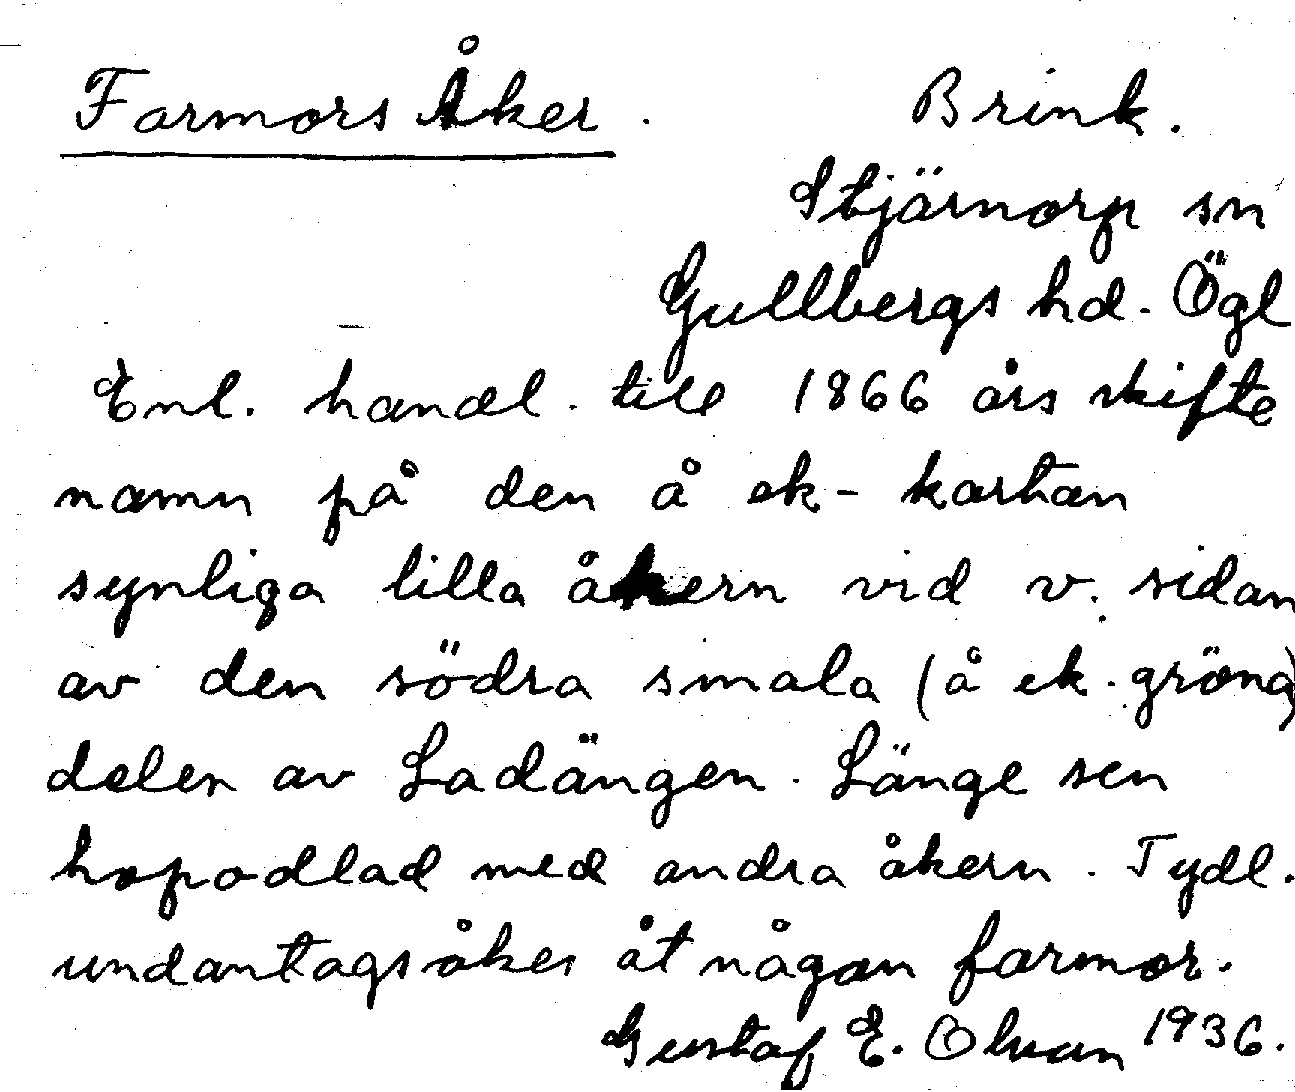 Farmors Åker. Brink.
Stjärnorp sn
Gullbergs hd. Ögl
Enl. handl. till 1866 års skifte
namn på den å ek-kartan
synliga lilla åkern vid v. sidan
av den södra smala (å ek. gröna)
delen av Ladängen. Länge sen
hopodlad med andra åkern. Tydl.
undantagsåker åt någon farmor.
Gustaf E. Olsson 1936.